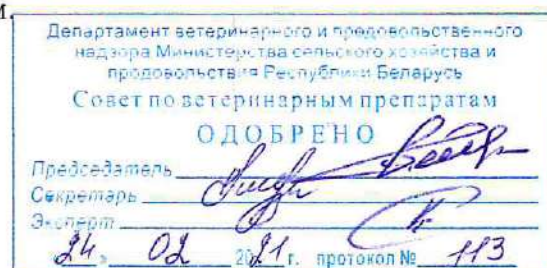 Департамент ветеринарного и продовольственного
надзора Министерства сельского хозяйства и
продовольствия Республики Беларусь
Совет по ветеринарным препаратам
ОДОБРЕНО
Председатель
Секретарь
Эксперт
24 » 02 2021 г. протокол № 113